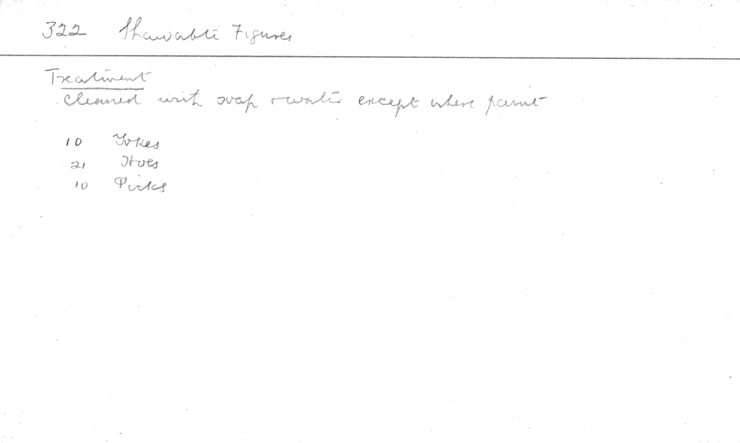 322 Shawabti Figures
Treatment
Cleaned with soap & water except where paint
10 Yokes
21 Hoes
10 Picks